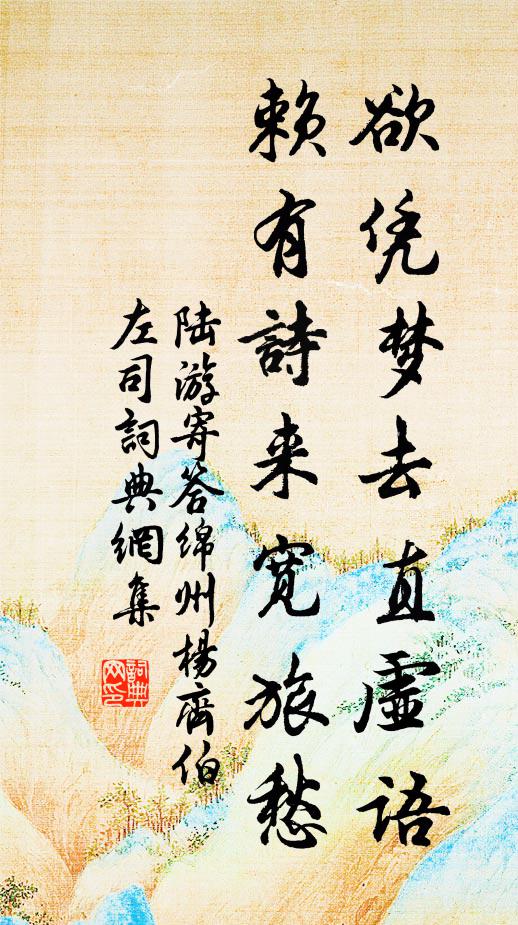 欲凭梦去直虚语
赖有詩来宽旅愁
陆游寄答绵州楊齊伯
左司詞典網集
詞典
网印